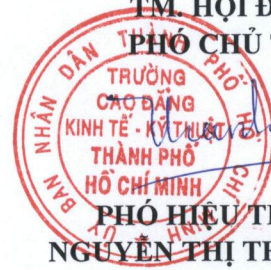 TM. HỘI Đ
PHÓ CHỦ T
ỦY BAN NHÂN DÂN THÀNH PHỐ HỒ CHÍ MINH
TRƯỜNG
CAO ĐẲNG
KINH TẾ - KỸ THUẬT
THÀNH PHỐ
HỒ CHÍ MINH
PHÓ HIỆU T
NGUYỄN THỊ TH